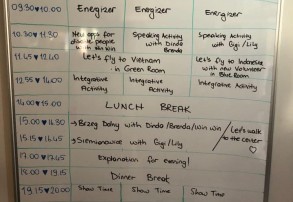 09.30♥10.00 Energizer Energizer Energizer
10.30♥11.30 New opps for disable people with win win Speaking Activity with Dinda Brenda Speaking Activity with Gigi/Lily
11.45♥12.40 Let's fly to Vietnam in Green Room Let's fly to Indonesia with new Volunteer in Blue Room
12.55♥14.00 Integrative Activity Integrative Activity Integrative Activity
14.00♥15.00 LUNCH BREAK
15.00♥16.30 → Brzeg Dolny with Dinda/Brenda/win win / Let's walk to the center ♡
15.15♥16.45 → Siemianowice with Gigi/Lily
17.00♥17.45 Explanation for evening!
18.00♥19.15 Dinner Break
19.15♥20.00 Show Time Show Time Show Time